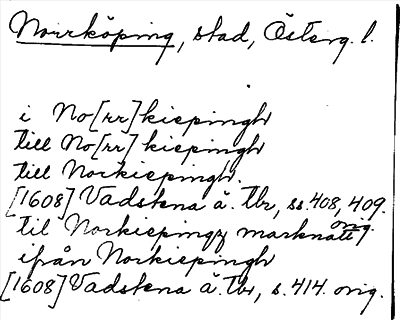 Norrköping, stad, Österg. l.
i No[rr]kiepingh
till No[rr]kiepingh
till Norkiepingh.
[1608] Vadstena ä. tbr, ss 408, 409. orig.
til Norkiepingz marknatt
ifrån Norkiepingh
[1608] Vadstena ä. tbr, s. 414. orig.